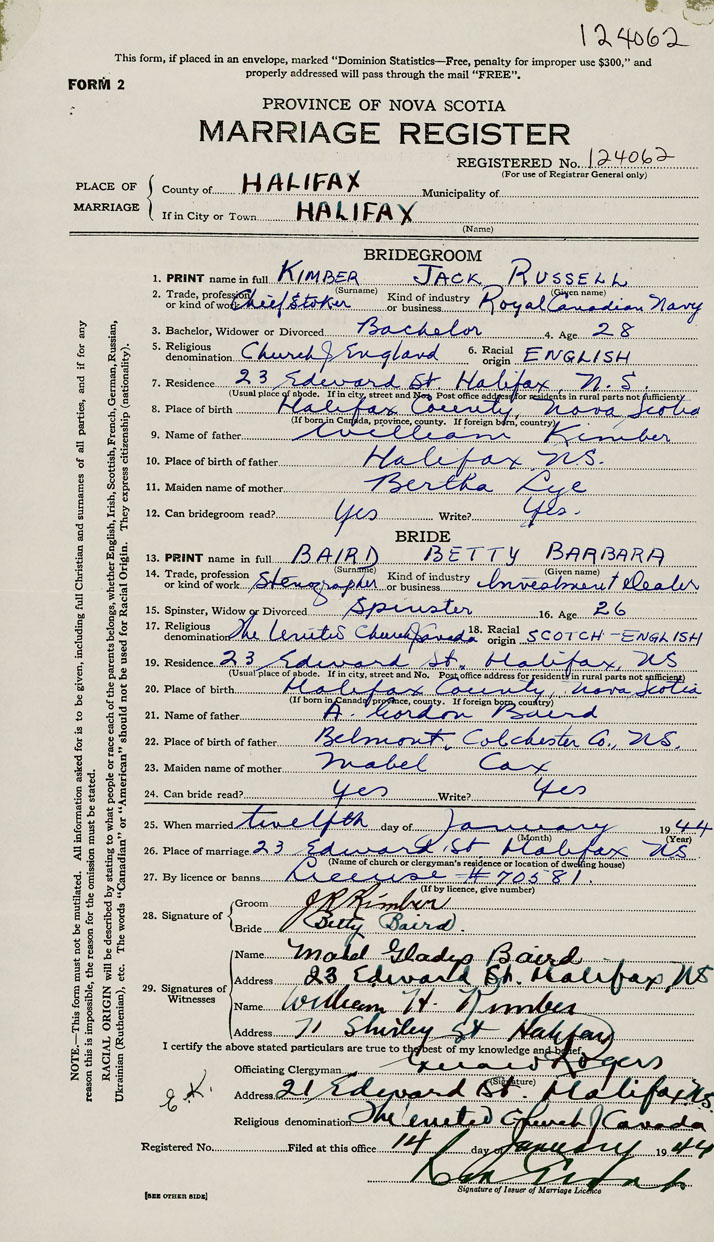 124062
This form, if placed in an envelope, marked "Dominion Statistics—Free, penalty for improper use $300," and
properly addressed will pass through the mail "FREE".
FORM 2
PROVINCE OF NOVA SCOTIA
MARRIAGE REGISTER
REGISTERED No. 124062
(For use of Registrar General only)
PLACE OF MARRIAGE
County of HALIFAX Municipality of
If in City or Town HALIFAX
(Name)
BRIDEGROOM
1. PRINT name in full KIMBER JACK RUSSELL
(Surname) (Given name)
2. Trade, profession or kind of work Chief Stoker Kind of industry or business Royal Canadian Navy
3. Bachelor, Widower or Divorced Bachelor 4. Age 28
5. Religious denomination Church of England 6. Racial origin ENGLISH
7. Residence 23 Edward St Halifax, N.S.
(Usual place of abode. If in city, street and No. Post office address for residents in rural parts not sufficient)
8. Place of birth Halifax County, Nova Scotia
(If born in Canada, province, county. If foreign born, country)
9. Name of father William Kimber
10. Place of birth of father Halifax N.S.
11. Maiden name of mother Bertha Lye
12. Can bridegroom read? Yes Write? Yes.
BRIDE
13. PRINT name in full BAIRD BETTY BARBARA
(Surname) (Given name)
14. Trade, profession or kind of work Stenographer Kind of industry or business Investment Dealer
15. Spinster, Widow or Divorced Spinster 16. Age 26
17. Religious denomination The United Church of Canada 18. Racial origin SCOTCH-ENGLISH
19. Residence 23 Edward St. Halifax, NS
(Usual place of abode. If in city, street and No. Post office address for residents in rural parts not sufficient)
20. Place of birth Halifax County, Nova Scotia
(If born in Canada, province, county. If foreign born, country)
21. Name of father A. Gordon Baird
22. Place of birth of father Belmont, Colchester Co., NS.
23. Maiden name of mother Mabel Cox
24. Can bride read? Yes Write? Yes
25. When married twelfth day of January 1944
(Month) (Year)
26. Place of marriage 23 Edward St Halifax NS
(Name of church or clergyman's residence or location of dwelling house)
27. By licence or banns License #70581.
(If by licence, give number)
28. Signature of
Groom J R Kimber
Bride Betty Baird.
29. Signatures of Witnesses
Name Maid Gladys Baird
Address 23 Edward St. Halifax NS
Name William H. Kimber
Address 71 Shirley St Halifax
I certify the above stated particulars are true to the best of my knowledge and belief.
Officiating Clergyman Rogers
(Signature)
E.K.
Address 21 Edward St. Halifax NS.
Religious denomination The United Church of Canada
Registered No. Filed at this office 14 day of January 1944
Signature of Issuer of Marriage Licence
[SEE OTHER SIDE]
NOTE.—This form must not be mutilated. All information asked for is to be given, including full Christian and surnames of all parties, and if for any
reason this is impossible, the reason for the omission must be stated.
RACIAL ORIGIN will be described by stating to what people or race each of the parents belongs, whether English, Irish, Scottish, French, German, Russian,
Ukrainian (Ruthenian), etc. The words "Canadian" or "American" should not be used for Racial Origin. They express citizenship (nationality).